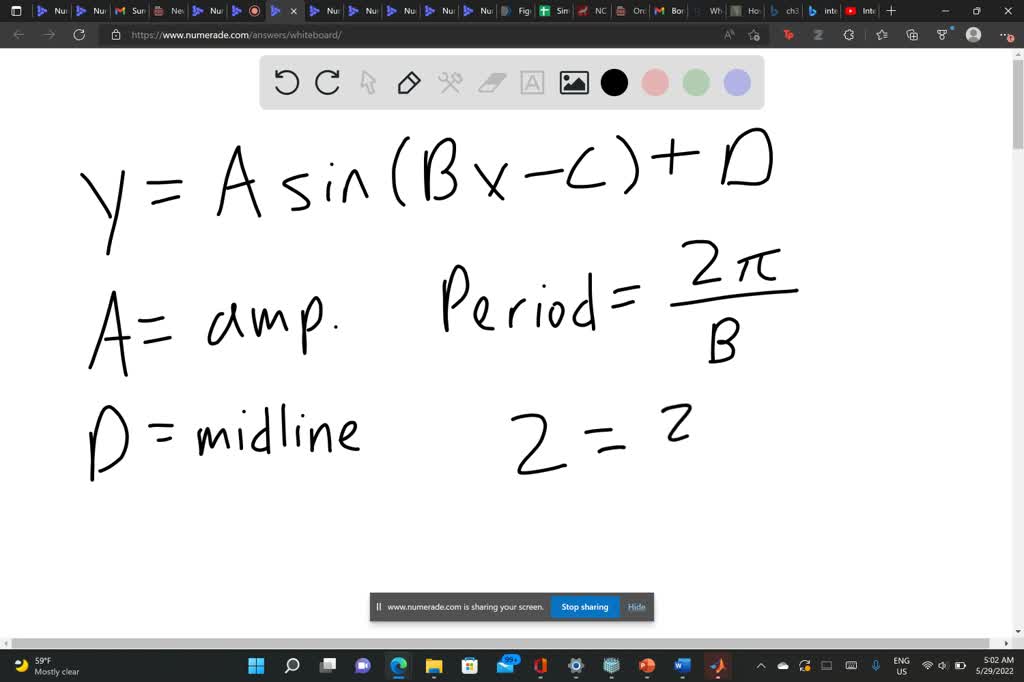 Nu Nu Sur Ne Nu Nu Nu Nu Nu Nu Fig Sim NC Orc Bor Wh Ho ch3 inte Inte
https://www.numerade.com/answers/whiteboard/
A
y = A sin(Bx - C) + D
A = amp. Period = 2π/B
D = midline 2 = 2
www.numerade.com is sharing your screen. Stop sharing Hide
59°F
Mostly clear
99+
ENG
US
5:02 AM
5/29/2022